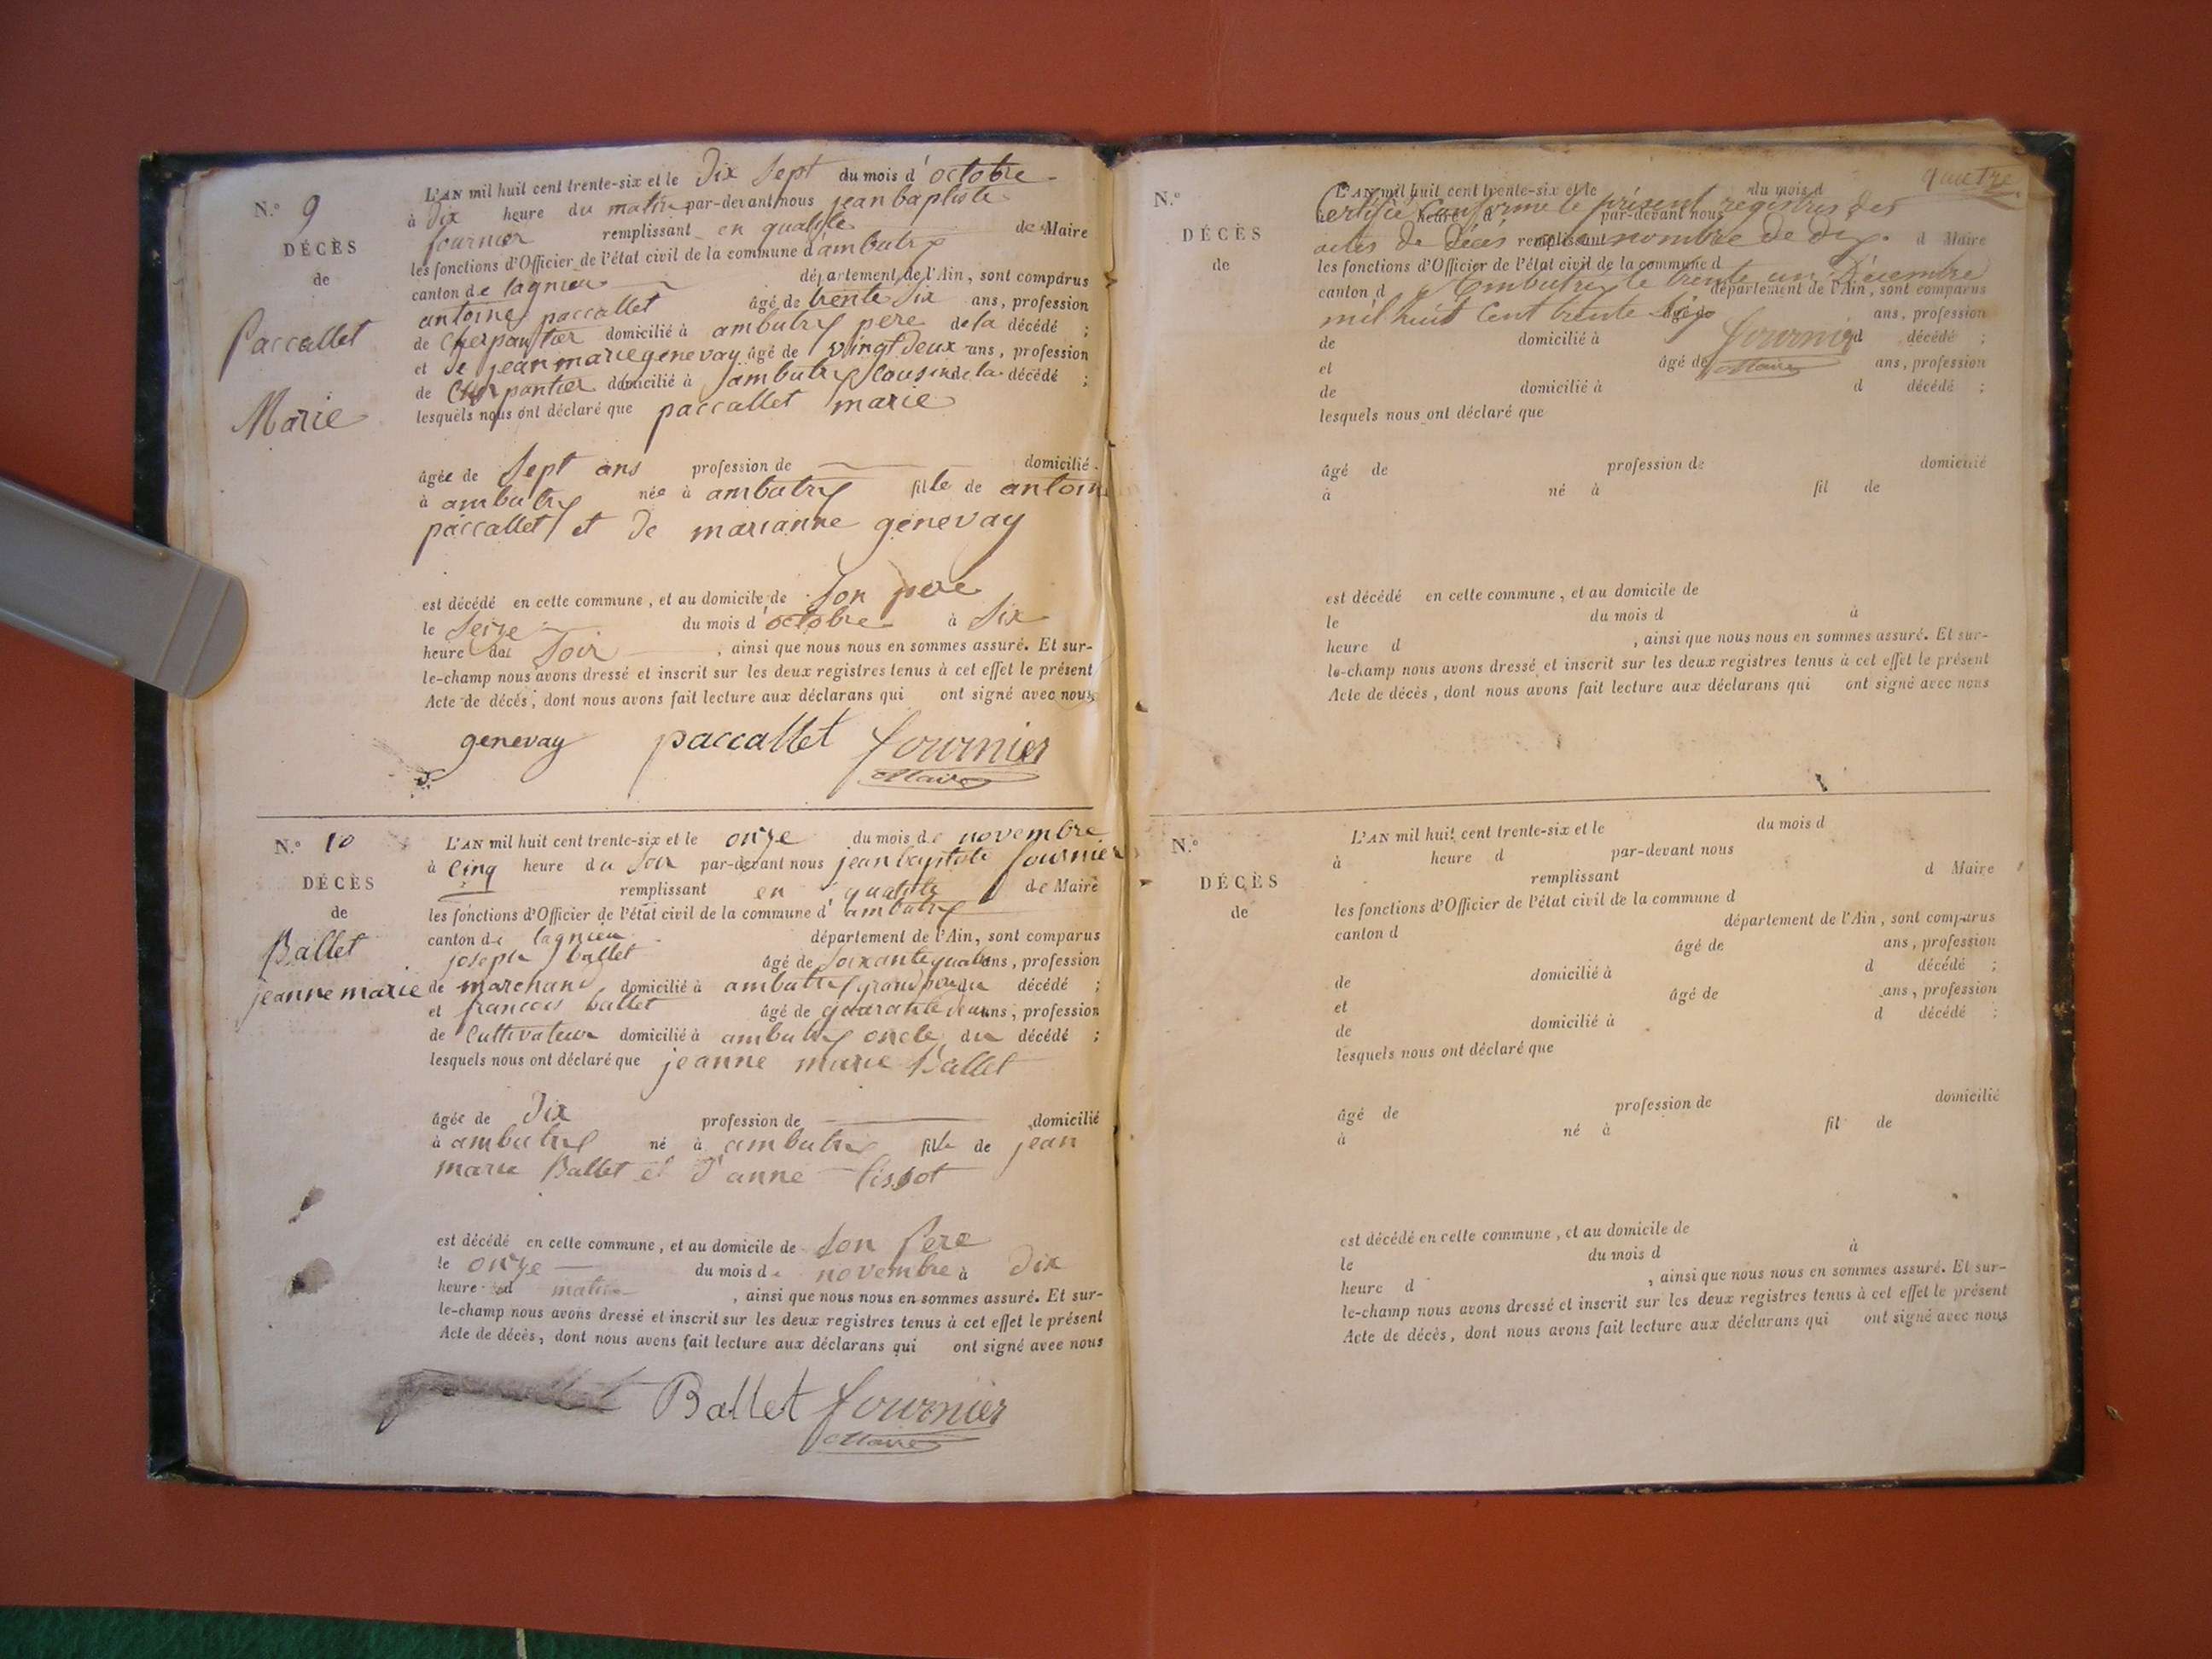 N.º 9
DÉCÈS
de
Paccallet
Marie
L'AN mil huit cent trente-six et le Dix Sept du mois d'octobre
à Dix heure du matin par-devant nous jean baptiste
fournier remplissant en qualité de Maire
les fonctions d'Officier de l'état civil de la commune d'ambutrix
canton de lagnieu département de l'Ain, sont comparus
antoine paccallet âgé de trente Six ans, profession
de Cherpantier domicilié à ambutrix pere de la décédé ;
et de jean marie genevay âgé de vingt Deux ans, profession
de Cherpantier domicilié à ambutrix Cousin de la décédé ;
lesquels nous ont déclaré que paccallet marie
âgée de Sept ans profession de domicilié
à ambutrix née à ambutrix fille de antoine
paccallet et de marianne genevay
est décédé en cette commune, et au domicile de Son pere
le Seize du mois d'octobre à Six
heure du Soir , ainsi que nous nous en sommes assuré. Et sur-
le-champ nous avons dressé et inscrit sur les deux registres tenus à cet effet le présent
Acte de décès, dont nous avons fait lecture aux déclarans qui ont signé avec nous
genevay paccallet fournier
Maire
N.º 10
DÉCÈS
de
Ballet
jeanne marie
L'AN mil huit cent trente-six et le onze du mois de novembre
à Cinq heure du Soir par-devant nous jean baptiste fournier
remplissant en qualité de Maire
les fonctions d'Officier de l'état civil de la commune d'ambutrix
canton de lagnieu département de l'Ain, sont comparus
joseph ballet âgé de Soixante quatre ans, profession
de marchand domicilié à ambutrix grand pere du décédé ;
et francois ballet âgé de quarante deux ans, profession
de Cultivateur domicilié à ambutrix oncle du décédé ;
lesquels nous ont déclaré que jeanne marie Ballet
âgée de Dix profession de domicilié
à ambutrix né à ambutrix fille de jean
marie Ballet et d'anne tissot
est décédé en cette commune, et au domicile de Son Pere
le onze du mois de novembre à Dix
heure d matin , ainsi que nous nous en sommes assuré. Et sur-
le-champ nous avons dressé et inscrit sur les deux registres tenus à cet effet le présent
Acte de décès, dont nous avons fait lecture aux déclarans qui ont signé avec nous
Ballet fournier
Maire
quatre
N.º
DÉCÈS
de
L'AN mil huit cent trente-six et le du mois d
Certifié Conforme le présent registres des
heure d par-devant nous
actes de décés au nombre de dix.
remplissant d Maire
les fonctions d'Officier de l'état civil de la commune d
Ambutrix le trente un Décembre
canton d département de l'Ain, sont comparus
mil huit Cent trente Six
âgé de ans, profession
fournier
de domicilié à d décédé ;
Maire
et âgé de ans, profession
de domicilié à d décédé ;
lesquels nous ont déclaré que
âgé de profession de domicilié
à né à fil de
est décédé en cette commune, et au domicile de
le du mois d à
heure d , ainsi que nous nous en sommes assuré. Et sur-
le-champ nous avons dressé et inscrit sur les deux registres tenus à cet effet le présent
Acte de décès, dont nous avons fait lecture aux déclarans qui ont signé avec nous
N.º
DÉCÈS
de
L'AN mil huit cent trente-six et le du mois d
à heure d par-devant nous
remplissant d Maire
les fonctions d'Officier de l'état civil de la commune d
canton d département de l'Ain, sont comparus
âgé de ans, profession
de domicilié à d décédé ;
et âgé de ans, profession
de domicilié à d décédé ;
lesquels nous ont déclaré que
âgé de profession de domicilié
à né à fil de
est décédé en cette commune, et au domicile de
le du mois d à
heure d , ainsi que nous nous en sommes assuré. Et sur-
le-champ nous avons dressé et inscrit sur les deux registres tenus à cet effet le présent
Acte de décès, dont nous avons fait lecture aux déclarans qui ont signé avec nous